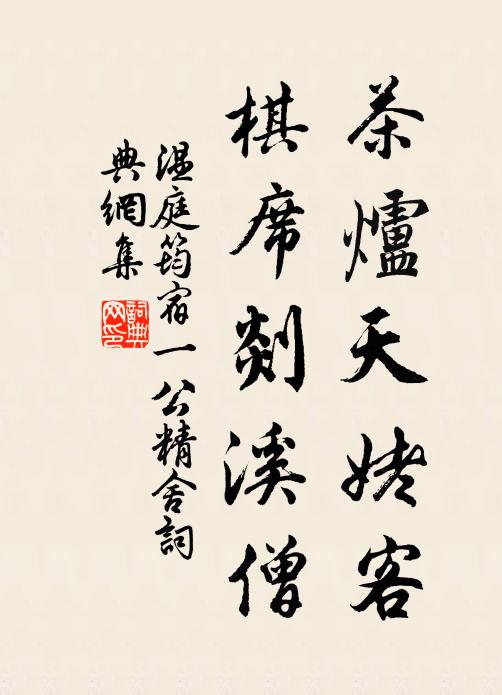 茶爐天姥客
棋席剡溪僧
温庭筠宿一公精舍詞
典網集
詞典網印